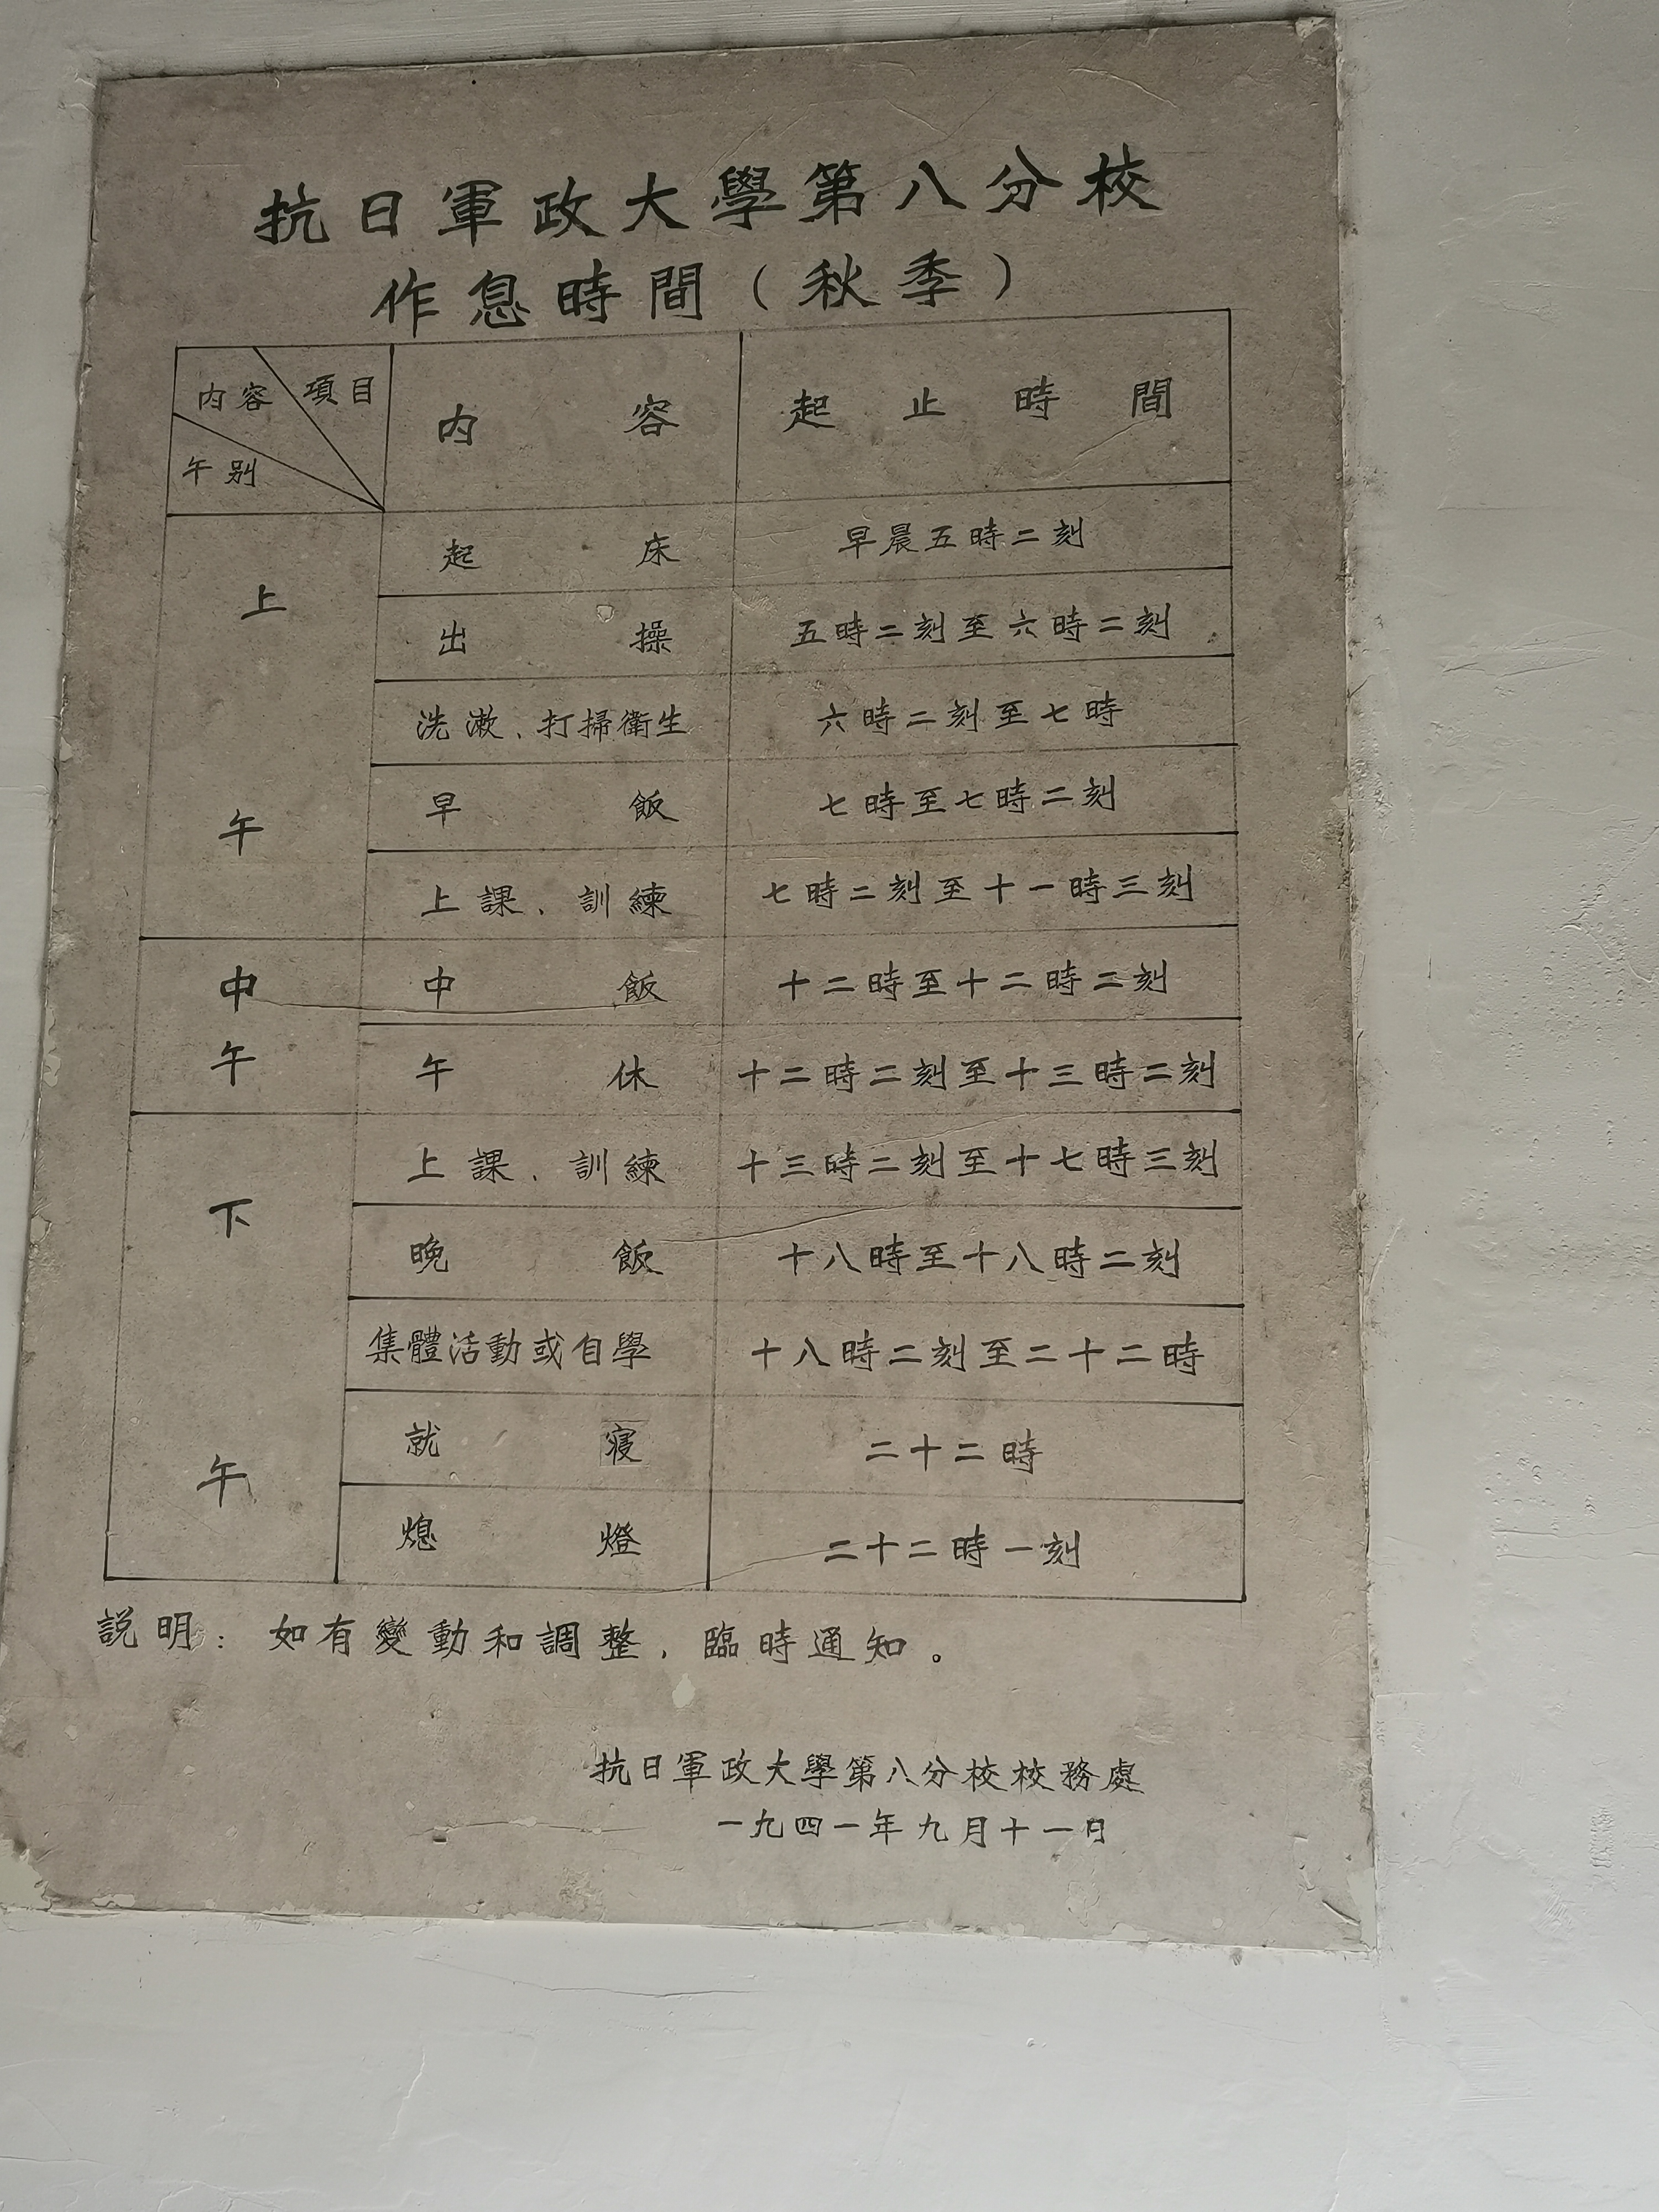 抗日軍政大學第八分校
作息時間（秋季）
内容 項目
午别
内容 起止時間
上午
起床 早晨五時二刻
出操 五時二刻至六時二刻
洗漱、打掃衛生 六時二刻至七時
早飯 七時至七時二刻
上課、訓練 七時二刻至十一時三刻
中午
中飯 十二時至十二時二刻
午休 十二時二刻至十三時二刻
下午
上課、訓練 十三時二刻至十七時三刻
晚飯 十八時至十八時二刻
集體活動或自學 十八時二刻至二十二時
就寢 二十二時
熄燈 二十二時一刻
説明：如有變動和調整，臨時通知。
抗日軍政大學第八分校校務處
一九四一年九月十一日